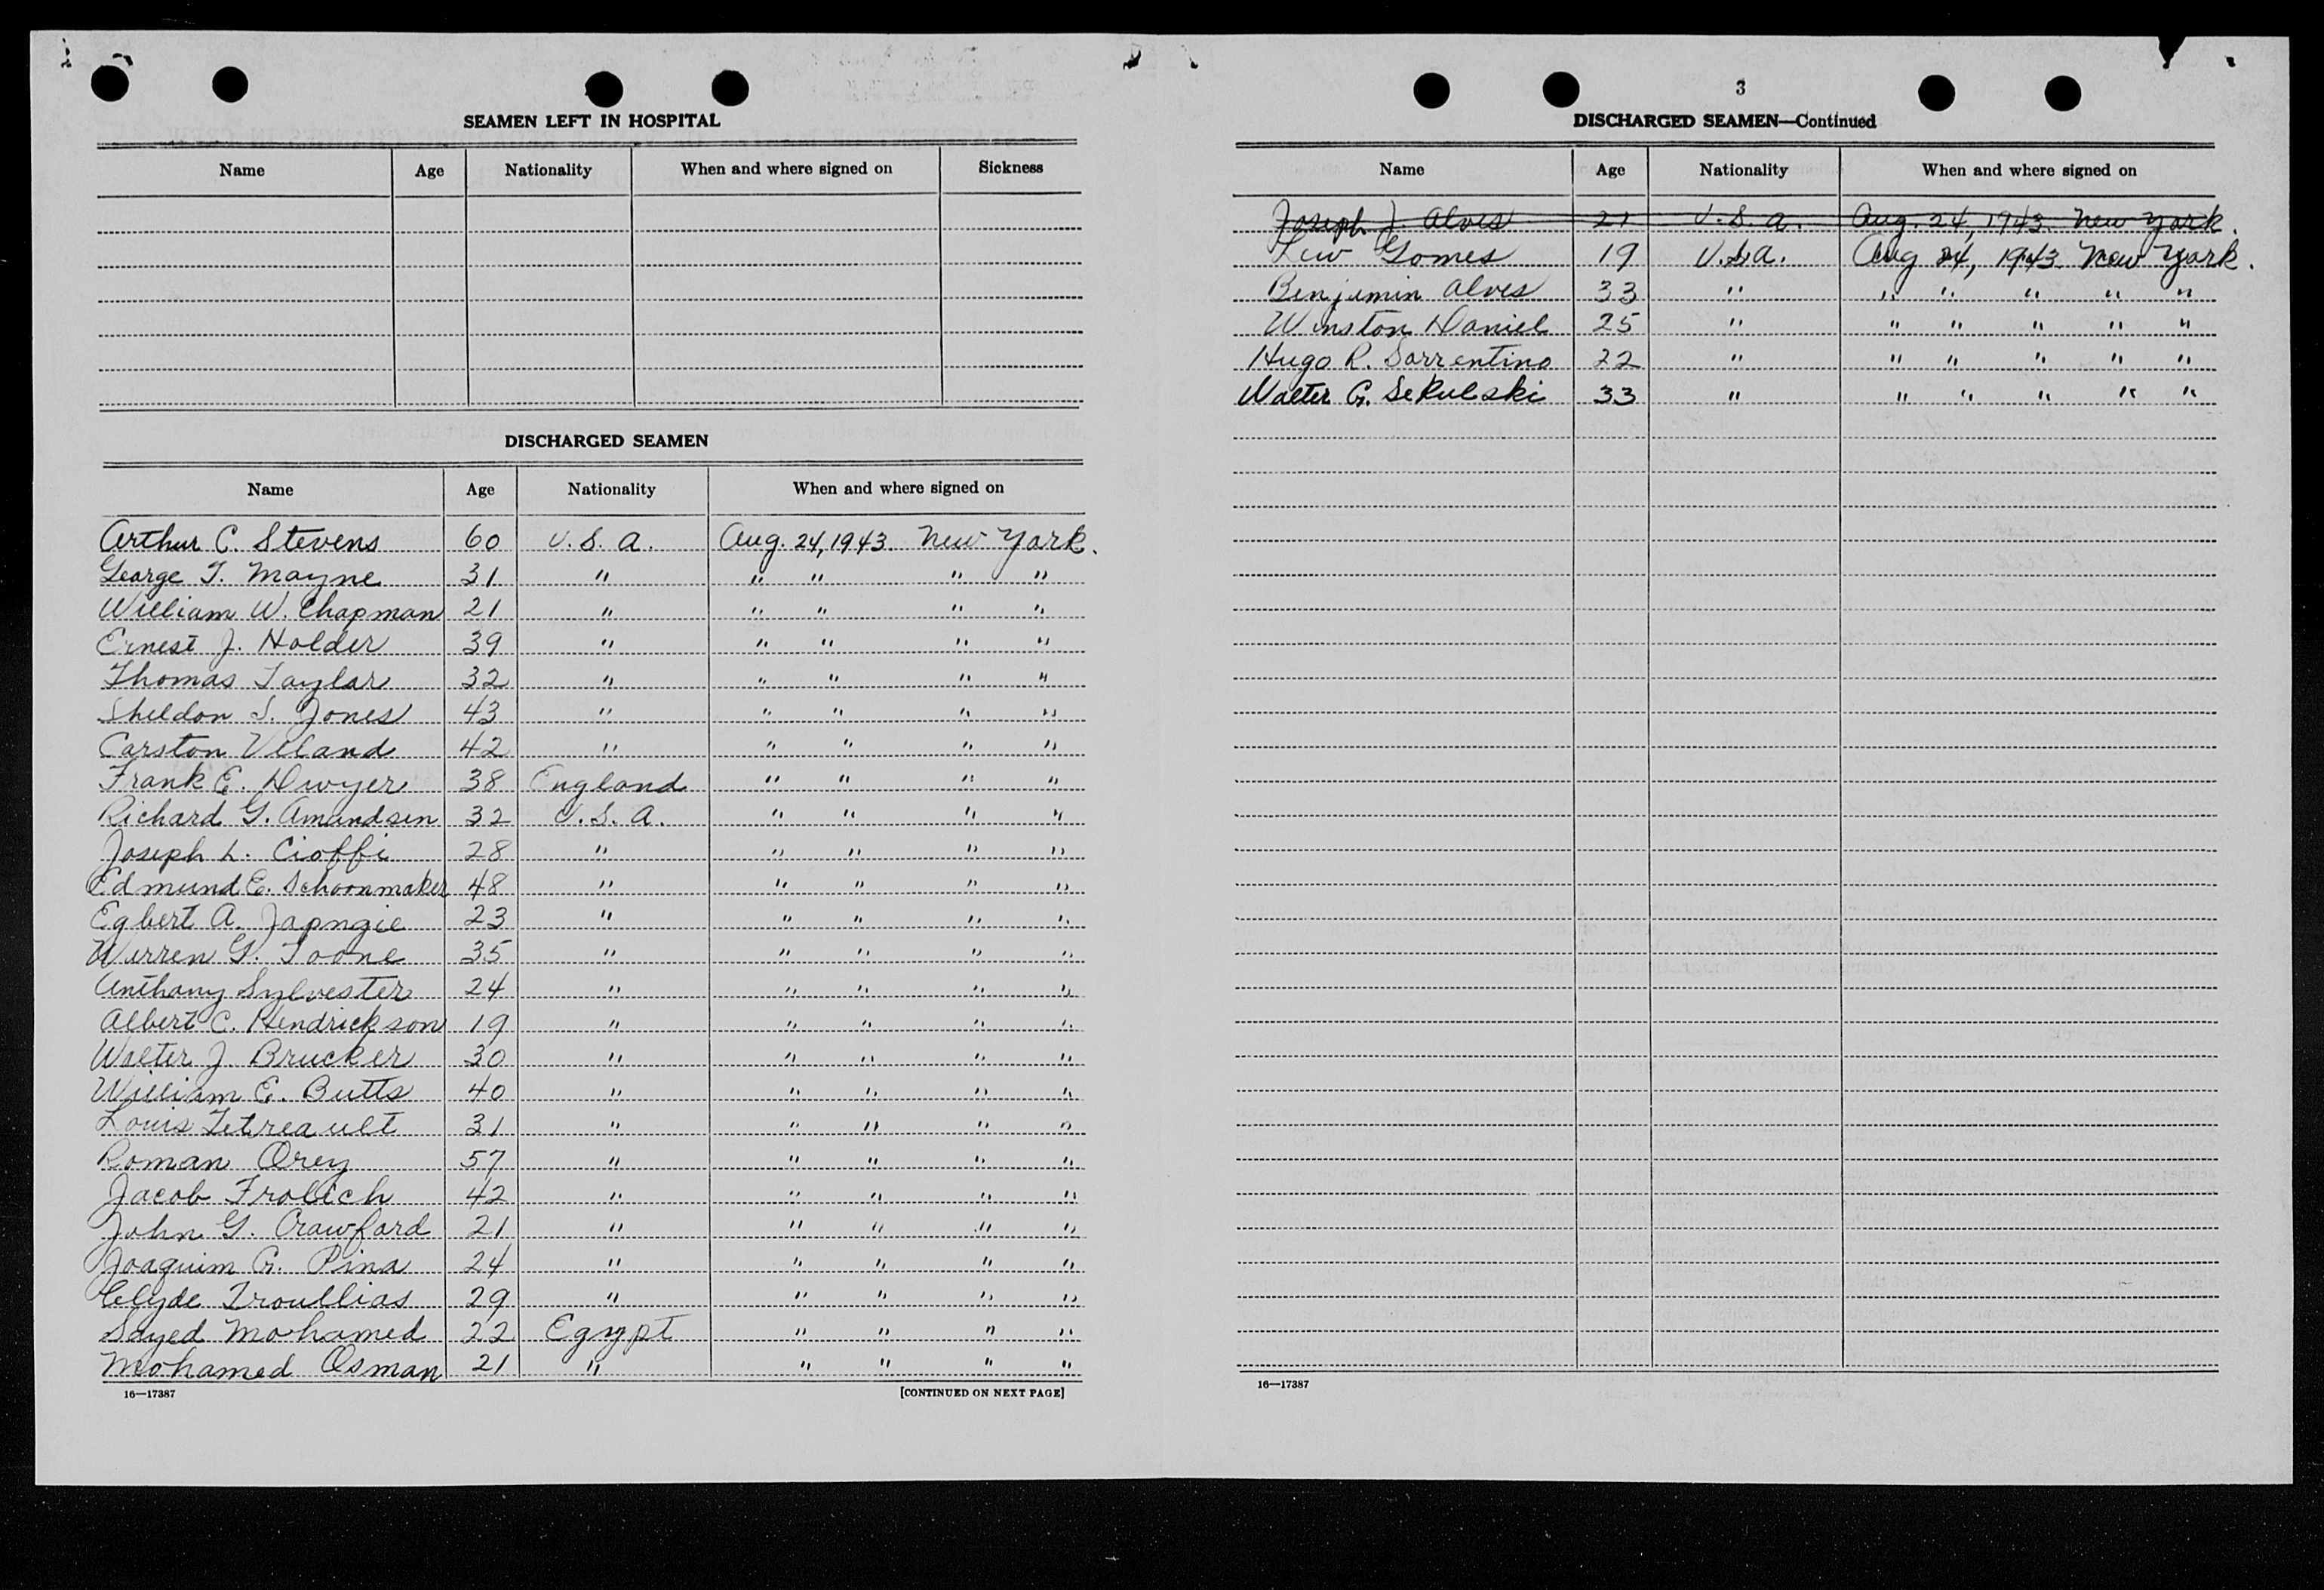 SEAMEN LEFT IN HOSPITAL
Name Age Nationality When and where signed on Sickness
DISCHARGED SEAMEN
Name Age Nationality When and where signed on
Arthur C. Stevens 60 U.S.A. Aug. 24, 1943 New York.
George T. Mayne 31 " " " " "
William W. Chapman 21 " " " " "
Ernest J. Holder 39 " " " " "
Thomas Taylor 32 " " " " "
Sheldon S. Jones 43 " " " " "
Carston Ueland 42 " " " " "
Frank E. Dwyer 38 England " " " "
Richard G. Amandsen 32 U.S.A. " " " "
Joseph L. Cioffi 28 " " " " "
Edmund E. Schoonmaker 48 " " " " "
Egbert A. Japngie 23 " " " " "
Warren G. Toone 35 " " " " "
Anthony Sylvester 24 " " " " "
Albert C. Hendrickson 19 " " " " "
Walter J. Brucker 30 " " " " "
William E. Butts 40 " " " " "
Louis Tetreault 31 " " " " "
Roman Orey 57 " " " " "
Jacob Frolich 42 " " " " "
John G. Crawford 21 " " " " "
Joaquim G. Pina 24 " " " " "
Clyde Troullias 29 " " " " "
Sayed Mohamed 22 Egypt " " " "
Mohamed Osman 21 " " " " "
16—17387 [CONTINUED ON NEXT PAGE]
3
DISCHARGED SEAMEN—Continued
Name Age Nationality When and where signed on
Joseph J. Alves 21 U.S.A. Aug. 24, 1943 New York.
Gomes 19 U.S.A. Aug 24, 1943 New York.
Benjamin Alves 33 " " " " " "
Winston Daniel 25 " " " " " "
Hugo R. Sorrentino 22 " " " " " "
Walter G. Sekulski 33 " " " " " "
16—17387